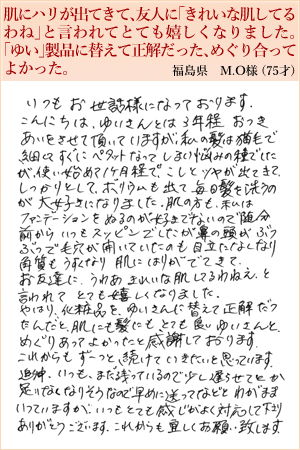 肌にハリが出てきて、友人に「きれいな肌してる
わね」と言われてとても嬉しくなりました。
「ゆい」製品に替えて正解だった、めぐり合って
よかった。
福島県　M.O様（75才）
いつもお世話様になっております。
こんにちは、ゆいさんとは3年程おつき
あいをさせて頂いていますが、私の髪は猫毛で
細くすぐにペタッとなってしまい悩みの種でした
が、使い始め1ヶ月程でこしとツヤが出てきて、
しっかりとして、ボリウムも出て毎日髪を洗うの
が大好きになりました。肌の方も、私は
ファンデーションをぬるのが好きでないので随分
前からいつもスッピンでしたが鼻の頭がぶつ
ぶつで毛穴が開いていたのも目立たなくなり
角質もうすくなり肌にはりがでてきて、
お友達に、うわあきれいな肌してるわねえ、と
言われてとても嬉しくなりました。
やはり、化粧品を、ゆいさんに替えて正解だっ
たんだと、肌にも髪にもとても良いゆいさんと、
めぐりあってよかったと感謝しております。
これからもずーっと、続けていきたいと思っています。
追伸、いつも、まだ残っているので少し遅らせてとか
足りなくなりそうなので早めに送ってなどとわがまま
いっていますが、いつもとても感じがよく対応して下さり
ありがとうございます。これからも宜しくお願い致します。